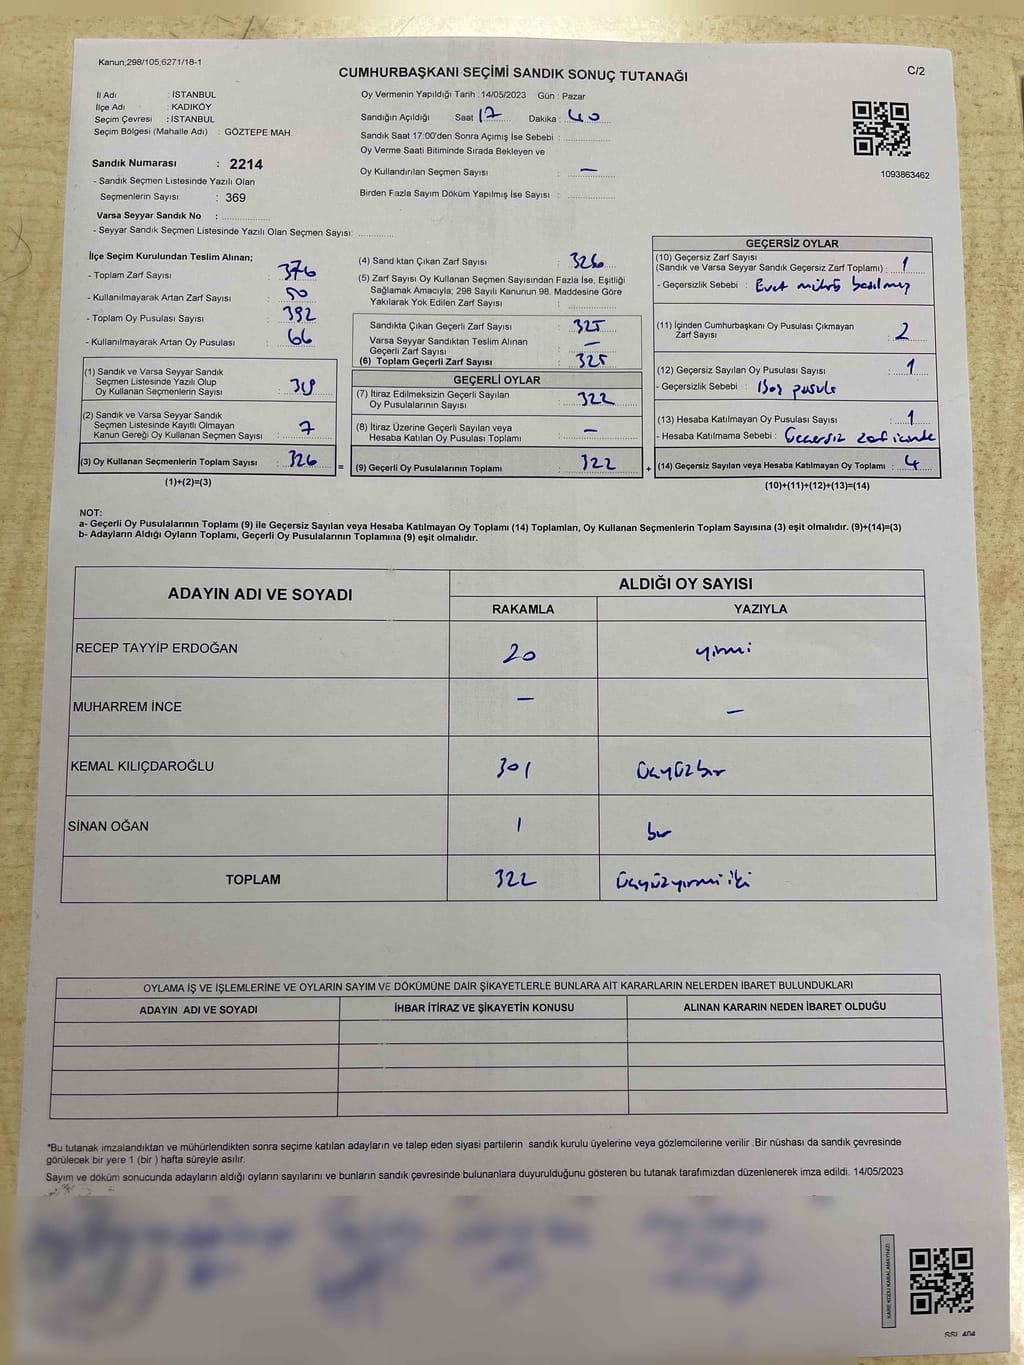 Kanun;298/105;6271/18-1
C/2
CUMHURBAŞKANI SEÇİMİ SANDIK SONUÇ TUTANAĞI
İl Adı : İSTANBUL
İlçe Adı : KADIKÖY
Seçim Çevresi : İSTANBUL
Seçim Bölgesi (Mahalle Adı) : GÖZTEPE MAH.
Sandık Numarası : 2214
- Sandık Seçmen Listesinde Yazılı Olan
Seçmenlerin Sayısı : 369
Varsa Seyyar Sandık No :
- Seyyar Sandık Seçmen Listesinde Yazılı Olan Seçmen Sayısı:
Oy Vermenin Yapıldığı Tarih : 14/05/2023 Gün : Pazar
Sandığın Açıldığı Saat 17 Dakika : 40
Sandık Saat 17:00'den Sonra Açımış İse Sebebi :
Oy Verme Saati Bitiminde Sırada Bekleyen ve
Oy Kullandırılan Seçmen Sayısı : —
Birden Fazla Sayım Döküm Yapılmış İse Sayısı :
1093863462
İlçe Seçim Kurulundan Teslim Alınan;
- Toplam Zarf Sayısı : 376
- Kullanılmayarak Artan Zarf Sayısı : 50
- Toplam Oy Pusulası Sayısı : 392
- Kullanılmayarak Artan Oy Pusulası : 66
(1) Sandık ve Varsa Seyyar Sandık
Seçmen Listesinde Yazılı Olup
Oy Kullanan Seçmenlerin Sayısı : 319
(2) Sandık ve Varsa Seyyar Sandık
Seçmen Listesinde Kayıtlı Olmayan
Kanun Gereği Oy Kullanan Seçmen Sayısı : 7
(3) Oy Kullanan Seçmenlerin Toplam Sayısı : 326
(1)+(2)=(3)
=
(4) Sandıktan Çıkan Zarf Sayısı : 326
(5) Zarf Sayısı Oy Kullanan Seçmen Sayısından Fazla İse, Eşitliği
Sağlamak Amacıyla; 298 Sayılı Kanunun 98. Maddesine Göre
Yakılarak Yok Edilen Zarf Sayısı :
Sandıkta Çıkan Geçerli Zarf Sayısı : 325
Varsa Seyyar Sandıktan Teslim Alınan
Geçerli Zarf Sayısı : —
(6) Toplam Geçerli Zarf Sayısı : 325
GEÇERLİ OYLAR
(7) İtiraz Edilmeksizin Geçerli Sayılan
Oy Pusulalarının Sayısı : 322
(8) İtiraz Üzerine Geçerli Sayılan veya
Hesaba Katılan Oy Pusulası Toplamı : —
(9) Geçerli Oy Pusulalarının Toplamı : 322
+
GEÇERSİZ OYLAR
(10) Geçersiz Zarf Sayısı
(Sandık ve Varsa Seyyar Sandık Geçersiz Zarf Toplamı) : 1
- Geçersizlik Sebebi : Evet mührü basılmış
(11) İçinden Cumhurbaşkanı Oy Pusulası Çıkmayan
Zarf Sayısı : 2
(12) Geçersiz Sayılan Oy Pusulası Sayısı : 1
- Geçersizlik Sebebi : Boş pusula
(13) Hesaba Katılmayan Oy Pusulası Sayısı : 1
- Hesaba Katılmama Sebebi : Geçersiz zarf içinde
(14) Geçersiz Sayılan veya Hesaba Katılmayan Oy Toplamı : 4
(10)+(11)+(12)+(13)=(14)
NOT:
a- Geçerli Oy Pusulalarının Toplamı (9) ile Geçersiz Sayılan veya Hesaba Katılmayan Oy Toplamı (14) Toplamları, Oy Kullanan Seçmenlerin Toplam Sayısına (3) eşit olmalıdır. (9)+(14)=(3)
b- Adayların Aldığı Oyların Toplamı, Geçerli Oy Pusulalarının Toplamına (9) eşit olmalıdır.
ADAYIN ADI VE SOYADI
ALDIĞI OY SAYISI
RAKAMLA YAZIYLA
RECEP TAYYİP ERDOĞAN 20 yirmi
MUHARREM İNCE — —
KEMAL KILIÇDAROĞLU 301 üçyüzbir
SİNAN OĞAN 1 bir
TOPLAM 322 üçyüzyirmi iki
OYLAMA İŞ VE İŞLEMLERİNE VE OYLARIN SAYIM VE DÖKÜMÜNE DAİR ŞİKAYETLERLE BUNLARA AİT KARARLARIN NELERDEN İBARET BULUNDUKLARI
ADAYIN ADI VE SOYADI İHBAR İTİRAZ VE ŞİKAYETİN KONUSU ALINAN KARARIN NEDEN İBARET OLDUĞU
*Bu tutanak imzalandıktan ve mühürlendikten sonra seçime katılan adayların ve talep eden siyasi partilerin sandık kurulu üyelerine veya gözlemcilerine verilir .Bir nüshası da sandık çevresinde
görülecek bir yere 1 (bir ) hafta süreyle asılır.
Sayım ve döküm sonucunda adayların aldığı oyların sayılarını ve bunların sandık çevresinde bulunanlara duyurulduğunu gösteren bu tutanak tarafımızdan düzenlenerek imza edildi. 14/05/2023
KARE KODU KARALAMAYINIZ!